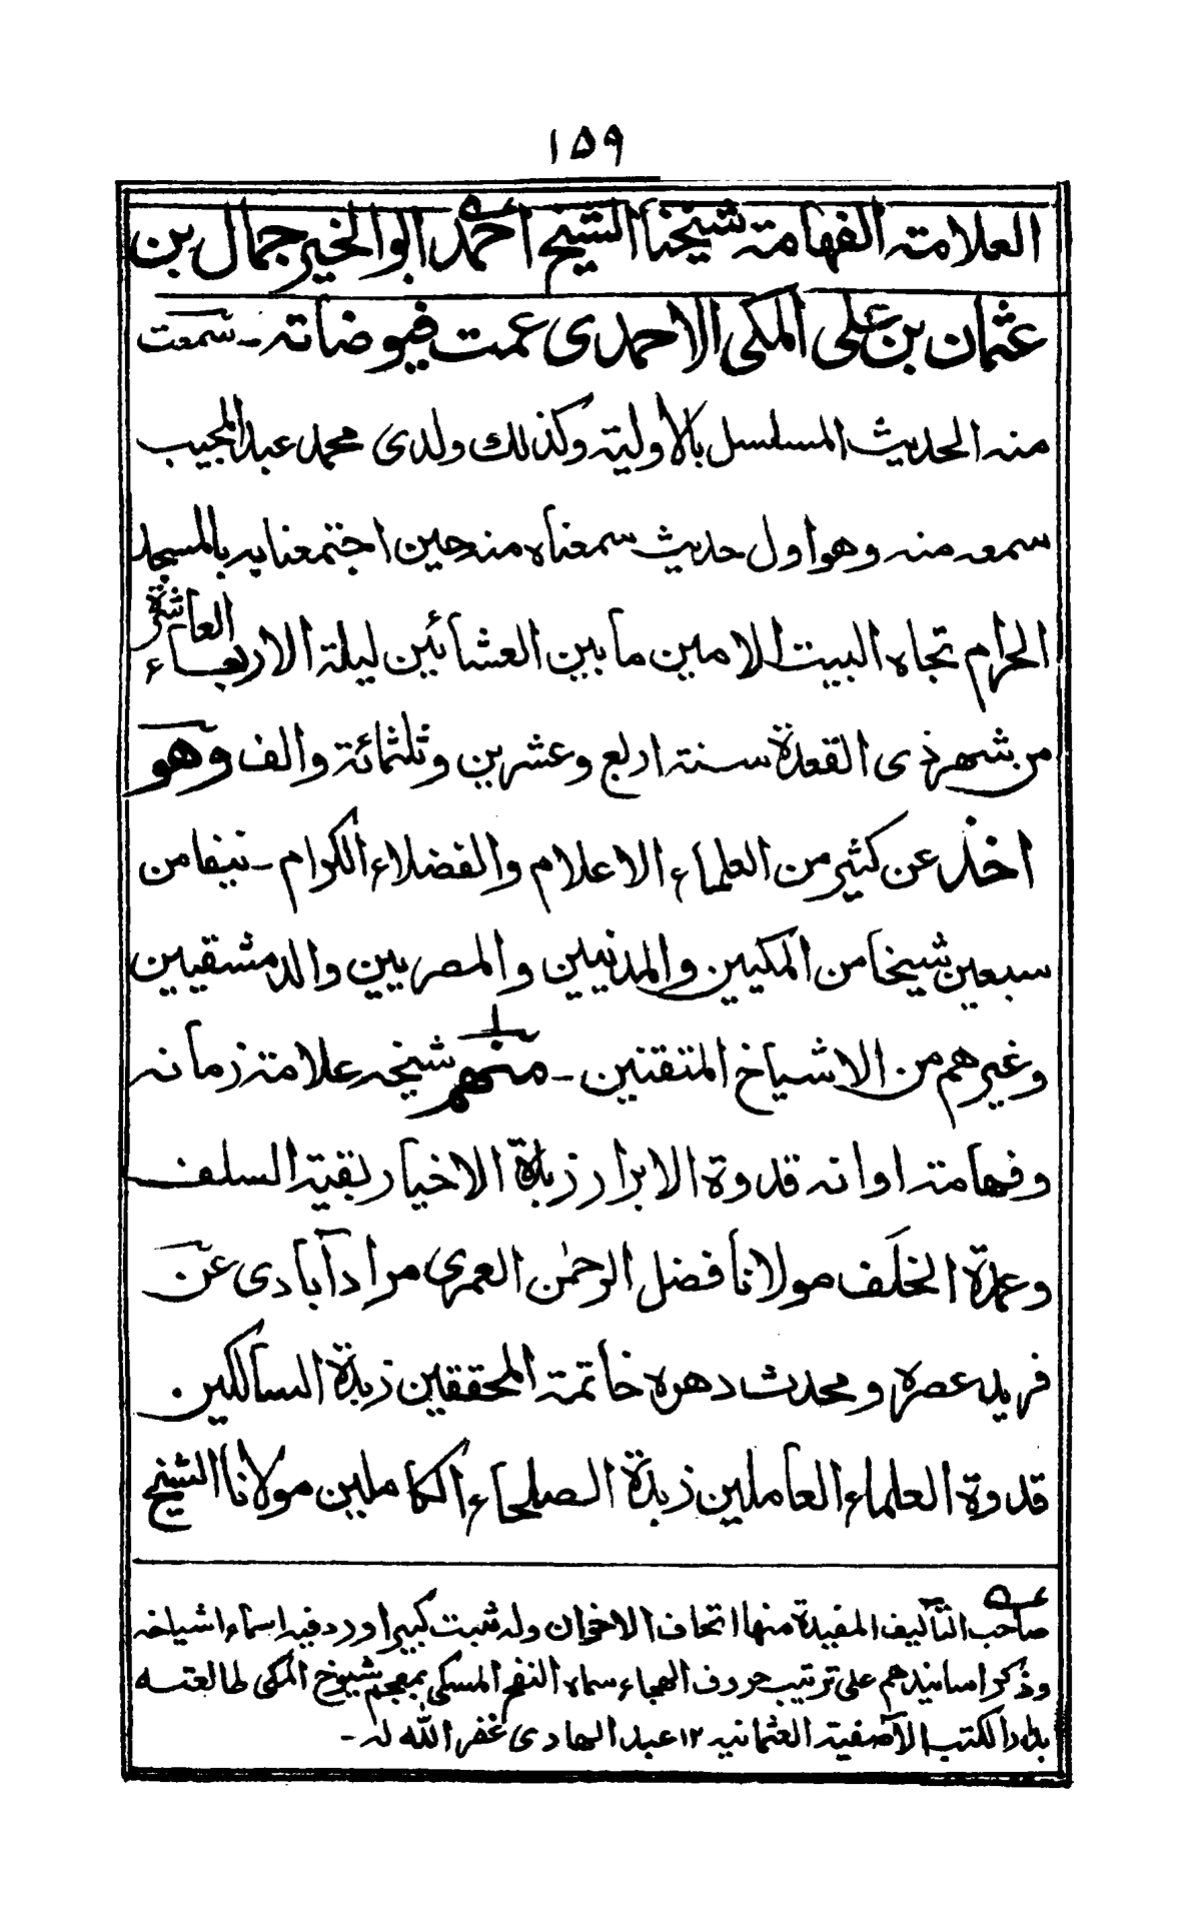 ۱۵۹
العلامة الفهامة شيخنا الشيخ احمد ابو الخير جمال بن
عثمان بن علي المكي الاحمدى عمت فيوضاته ـ سمعت
منه الحديث المسلسل بالاولية وكذلك ولدى محمد عبد المجيب
سمعه منه وهو اول حديث سمعناه منه حين اجتمعنا به بالمسجد
الحرام تجاه البيت الامين ما بين العشائين ليلة الاربعاء العاشرة
من شهر ذى القعدة سنة اربع وعشرين وثلثمائة والف وهو
اخذ عن كثير من العلماء الاعلام والفضلاء الكرام ـ نيفا من
سبعين شيخا من المكيين والمدنيين والمصريين والدمشقيين
وغيرهم من الاشياخ المتقنين ـ منهم شيخه علامة زمانه
وفهامة اوانه قدوة الابرار زبدة الاخيار بقية السلف
وعمدة الخلف مولانا فضل الرحمٰن العمرى مرادآبادى عن
فريد عصره ومحدث دهره خاتمة المحققين زبدة السالكين
قدوة العلماء العاملين زبدة الصلحاء الكاملين مولانا الشيخ
صاحب التآليف المفيدة منها اتحاف الاخوان وله ثبت كبير اورد فيه اسماء اشياخه
وذكر اسانيدهم على ترتيب حروف الهجاء سماه النفح المسكى بمعجم شيوخ المكى طالعته
بدار الكتب الآصفية العثمانيه ۱۲ عبد الهادى غفر الله له ـ